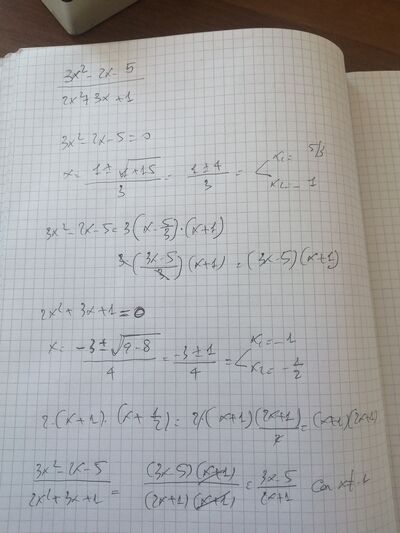 3x² - 2x - 5
2x² + 3x + 1
3x² - 2x - 5 = 0
x = 1 ± √1 + 15 / 3 = 1 ± 4 / 3 = < x₁ = 5/3 x₂ = - 1
3x² - 2x - 5 = 3 (x - 5/3) · (x + 1)
3 (3x - 5 / 3) (x + 1) = (3x - 5) (x + 1)
2x² + 3x + 1 = 0
x = -3 ± √9 - 8 / 4 = -3 ± 1 / 4 = < x₁ = - 1 x₂ = - 1/2
2 · (x + 1) · (x + 1/2) = 2 · (x + 1) (2x + 1 / 2) = (x + 1) (2x + 1)
3x² - 2x - 5 / 2x² + 3x + 1 = (3x - 5) (x + 1) / (2x + 1) (x + 1) = 3x - 5 / 2x + 1 con x ≠ - 1